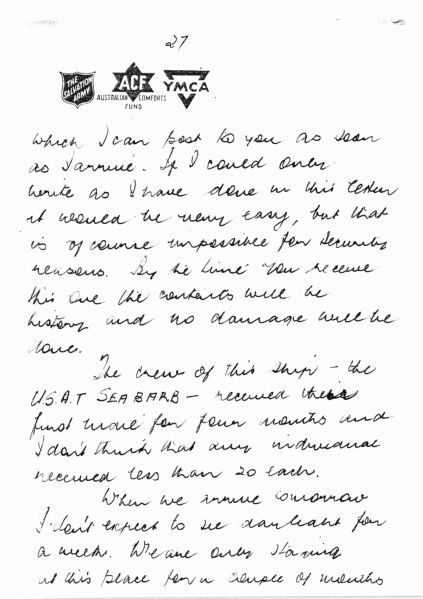 27
THE SALVATION ARMY
ACF
AUSTRALIAN COMFORTS FUND
YMCA
which I can post to you as soon
as I arrive. If I could only
write as I have done in this letter
it would be very easy, but that
is of course impossible for security
reasons. By the time you receive
this one the contents will be
history and no damage will be
done.
The crew of this ship - the
U.S.A.T SEA BARB - received their
first mail for four months and
I don't think that any individual
received less than 20 each.
When we arrive tomorrow
I don't expect to see daylight for
a week. We are only staying
at this place for a couple of months